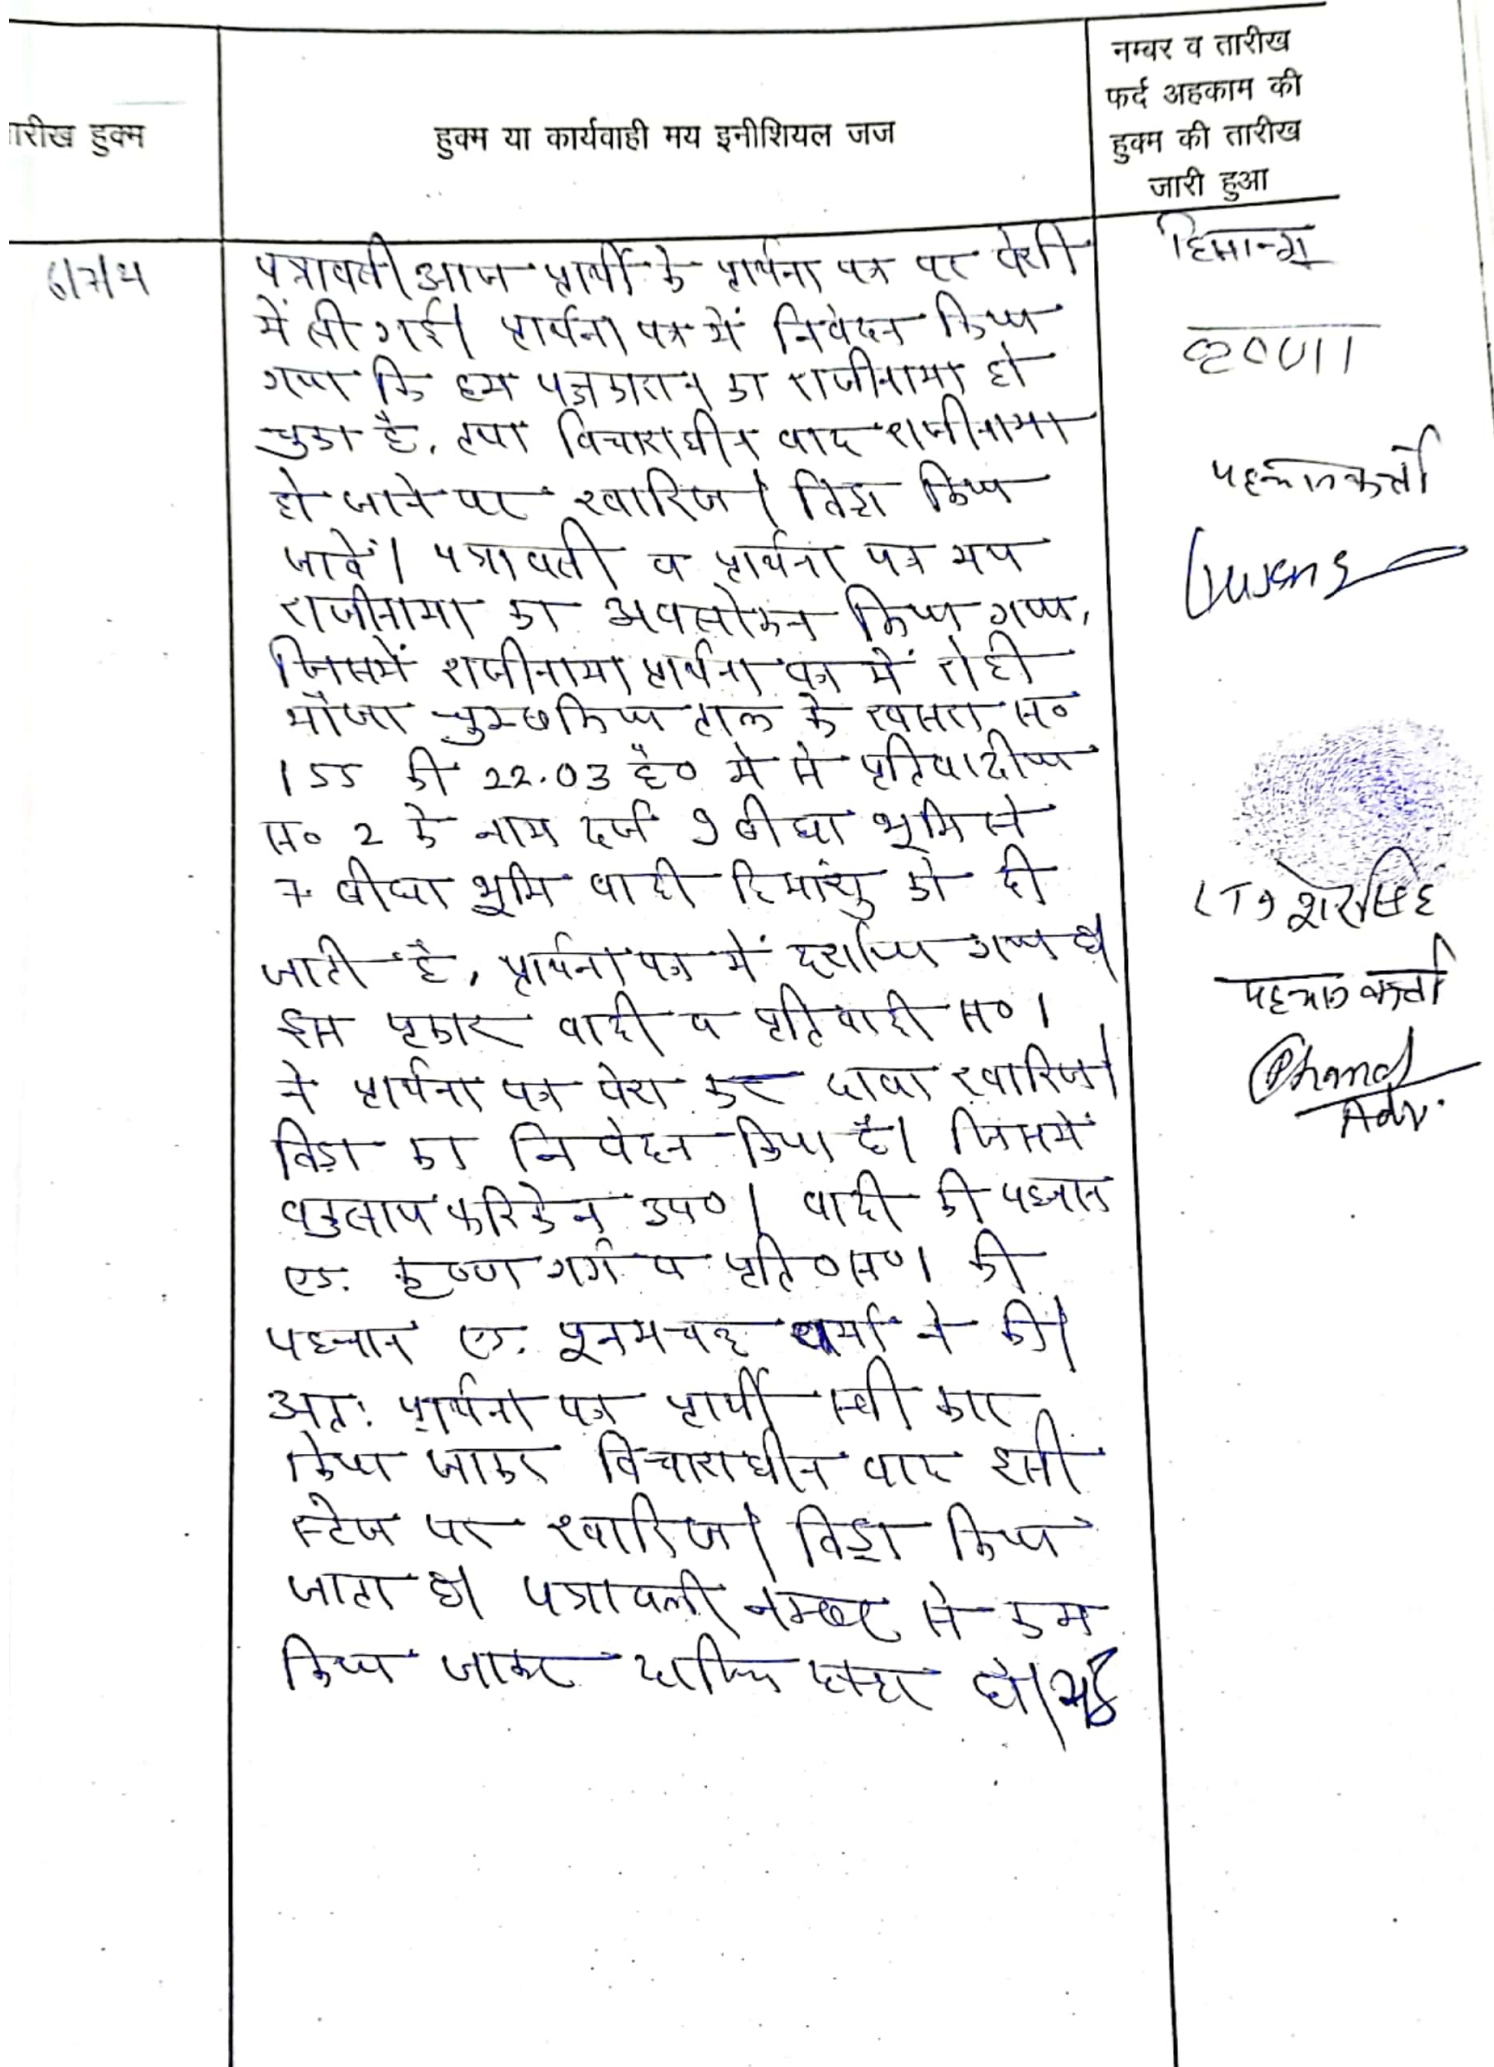 नम्बर व तारीख
फर्द अहकाम की
हुक्म की तारीख
जारी हुआ
तारीख हुक्म
हुक्म या कार्यवाही मय इनीशियल जज
पत्रावली आज प्रार्थी के प्रार्थना पत्र पर पेशी
में ली गई। प्रार्थना पत्र में निवेदन किया
गया कि हम पक्षकारान का राजीनामा हो
चुका है, तथा विचाराधीन वाद राजीनामा
हो जाने पर खारिज। विड्रा किया
जावें। पत्रावली व प्रार्थना पत्र मय
राजीनामा का अवलोकन किया गया,
जिसमें राजीनामा प्रार्थना पत्र में रोही
मौजा ताल के खसरा स०
155 की 22.03 है० में से प्रतिवादीया
स० 2 के नाम दर्ज 9 बीघा भूमि से
7 बीघा भूमि वादी हिमांशु को दी
जाती है, प्रार्थना पत्र में दर्शाया गया है।
इस प्रकार वादी व प्रतिवादी स० 1
ने प्रार्थना पत्र पेश कर दावा खारिज।
विड्रा का निवेदन किया है। जिसमें
वकुलाय फरिकेन उप०। वादी की पहचान
एड. कृष्ण गर्ग व प्रति०स०1 की
पहचान एड. पूनमचन्द शर्मा ने की।
अतः प्रार्थना पत्र प्रार्थी स्वीकार
किया जाकर विचाराधीन वाद इसी
स्टेज पर खारिज। विड्रा किया
जाता है। पत्रावली नम्बर से कम
किया जाकर दाखिल दफ्तर हो।
6/7/21
हिमान्शु
कृष्णा
पहचानकर्ता
LTI शेरसिंह
पहचानकर्ता
Phand
Adv.